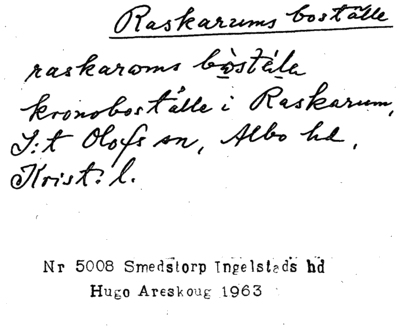 Raskarums boställe
raskaroms bòstá̤la
kronoboställe i Raskarum,
S:t Olofs sn, Albo hd,
Krist. l.
Nr 5008 Smedstorp Ingelstads hd
Hugo Areskoug 1963